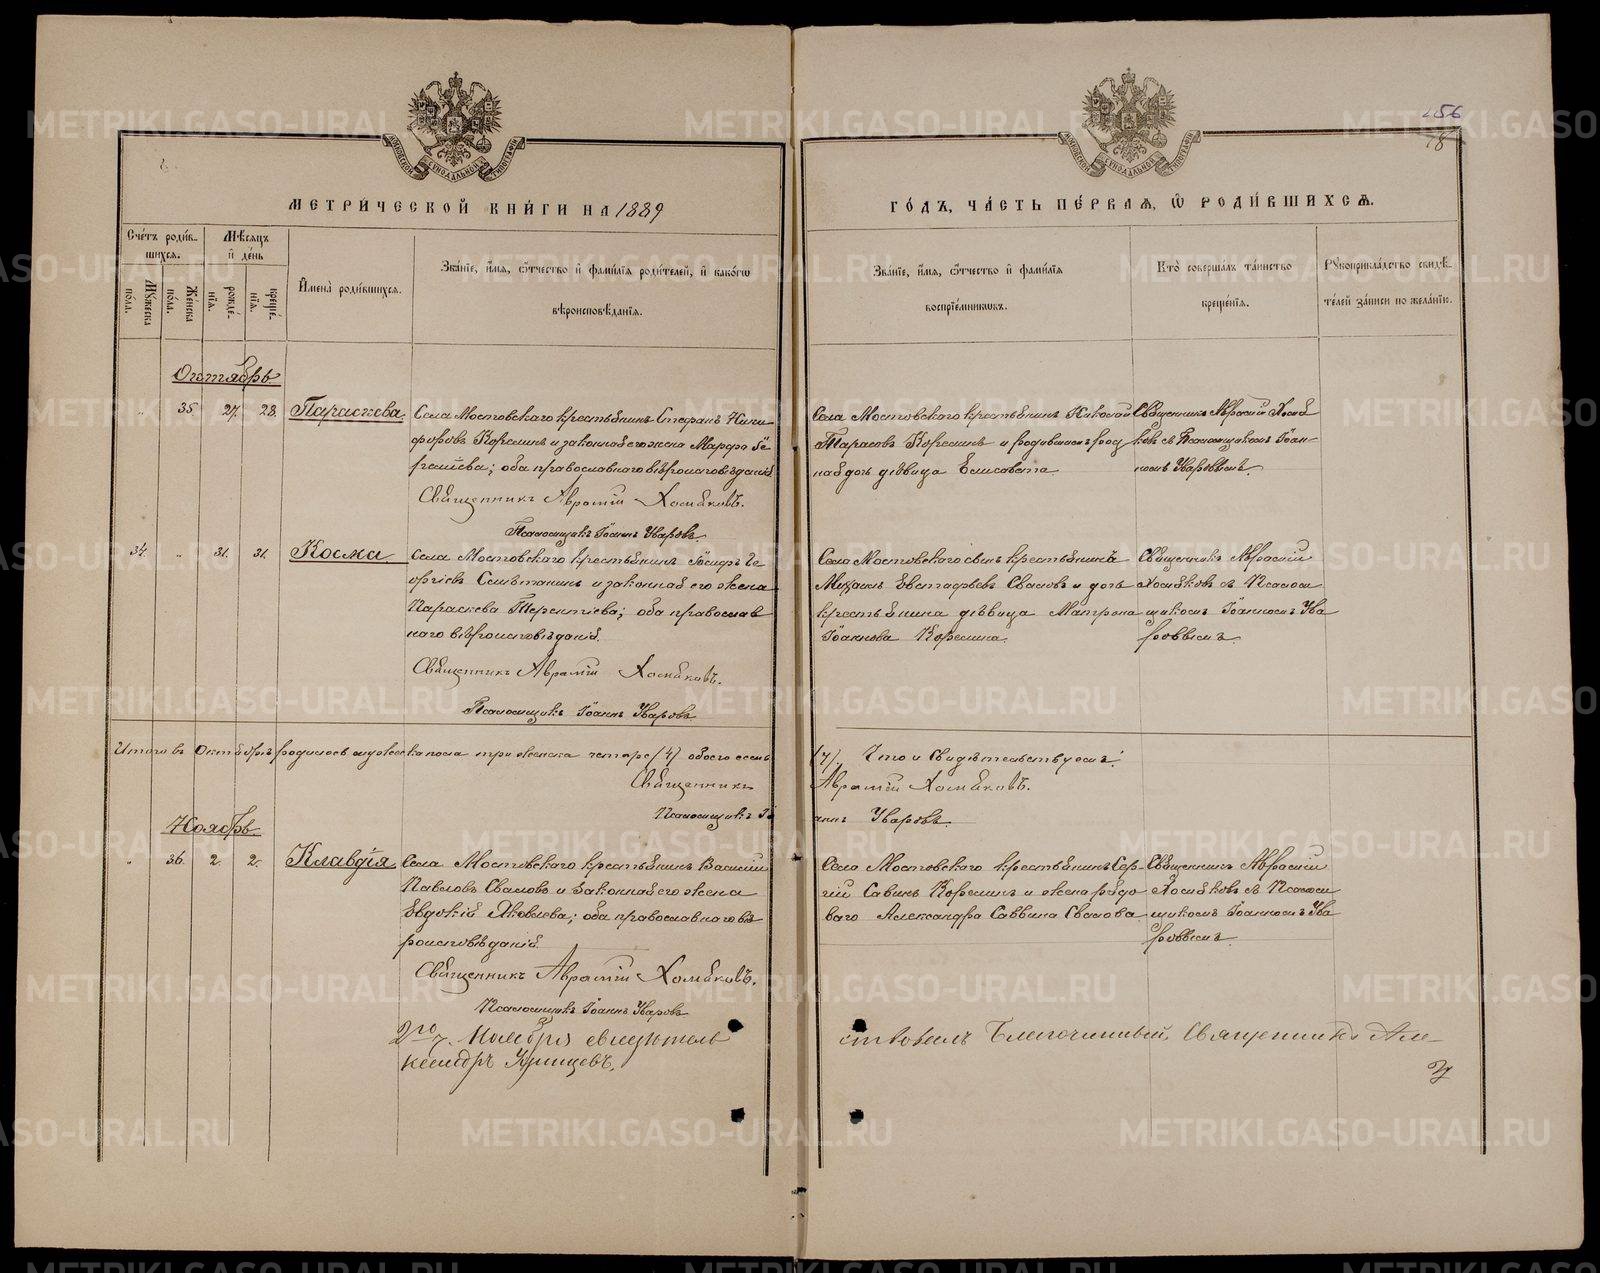 156
18
МОСКОВСКОЙ СѴНОДАЛЬНОЙ ТИПОГРАФІИ
МОСКОВСКОЙ СѴНОДАЛЬНОЙ ТИПОГРАФІИ
МЕТРИ́ЧЕСКОЙ КНИ́ГИ НА 1889
ГО́ДЪ, ЧА́СТЬ ПЕ́РВАѦ, Ѡ РОДИ́ВШИХСѦ.
Сче́тъ роди́в-
шихся.
Му́жеска
по́ла.
Же́нска
по́ла.
Мѣ́сяцъ
и де́нь
рожде́-
нїя.
креще́-
нїя.
Имена̀ роди́вшихся.
Зва́нїе, и́мя, о́тчество и фами́лїя роди́телей, и како́гѡ
вѣроисповѣ́данїя.
Зва́нїе, и́мя, о́тчество и фами́лїя
воспрїе́мникѡвъ.
Кто̀ соверша́лъ та́инство
креще́нїя.
Рꙋкоприкла́дство свидѣ́-
телей за́писи по жела́нїю.
Октябрь
„ 35. 27. 28. Параскева.
Села Мостовского крестьянинъ Стефанъ Ники-
форовъ Коремин и законная его жена Марфа Ге-
ргашева; оба православнаго вѣроисповѣданія
Священникъ Аврамій Хомяковъ.
Псаломщикъ Іоаннъ Уваровъ.
Села Мостовского крестьянинъ Николай
Тарасовъ Кореминъ и родившихся род-
ная дочь дѣвица Елисавета
Священникъ Аврамій Хомя-
ковъ съ Псаломщикомъ Іоан-
номъ Уваровымъ.
34. „ 31. 31. Косма.
Села Мостовского крестьянинъ Ге-
оргіевъ Сметанинъ и законная его жена
Параскева Терентіева; оба православ-
наго вѣроисповѣданія.
Священникъ Аврамій Хомяковъ.
Псаломщикъ Іоаннъ Уваровъ
Села Мостовского сынъ крестьянина
Михаилъ Евстафьевъ Сваловъ и дочь
крестьянина дѣвица Матрона
Іоаннова Коремина.
Священникъ Аврамій
Хомяковъ съ Псалом-
щикомъ Іоанномъ Ува-
ровымъ.
Итого въ Октябрѣ родилось мужеска пола три женска четыре (4) обоего семь
(7). Что и свидѣтельствуемъ:
Священникъ Аврамій Хомяковъ.
Псаломщикъ Іоаннъ Уваровъ.
Ноябрь.
„ 36. 2. 2. Клавдія.
Села Мостовского крестьянинъ Василій
Павловъ Сваловъ и законная его жена
Евдокія Яковлева; оба православнаго вѣ-
роисповѣданія.
Священникъ Аврамій Хомяковъ.
Псаломщикъ Іоаннъ Уваровъ
Села Мостовского крестьянинъ Сер-
гій Савинъ Кореминъ и жена рядо-
ваго Александра Саввина Свалова.
Священникъ Аврамій
Хомяковъ съ Псалом-
щикомъ Іоанномъ Ува-
ровымъ.
2го Ноября свидѣтель
ствовалъ Благочинный, Священникъ Але-
ксандръ
METRIKI.GASO-URAL.RU